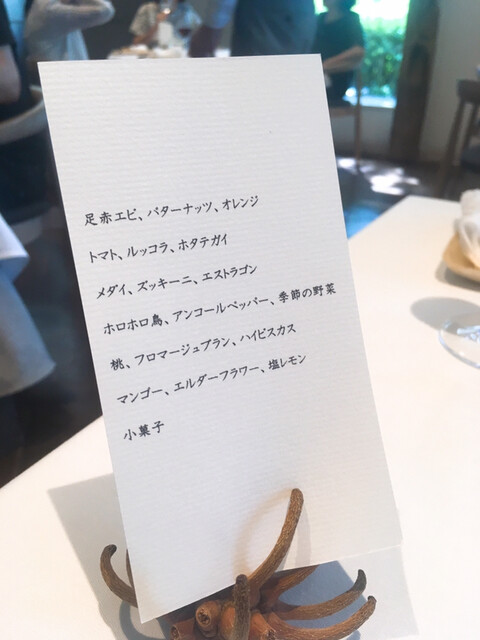 足赤エビ、バターナッツ、オレンジ
トマト、ルッコラ、ホタテガイ
メダイ、ズッキーニ、エストラゴン
ホロホロ鳥、アンコールペッパー、季節の野菜
桃、フロマージュブラン、ハイビスカス
マンゴー、エルダーフラワー、塩レモン
小菓子